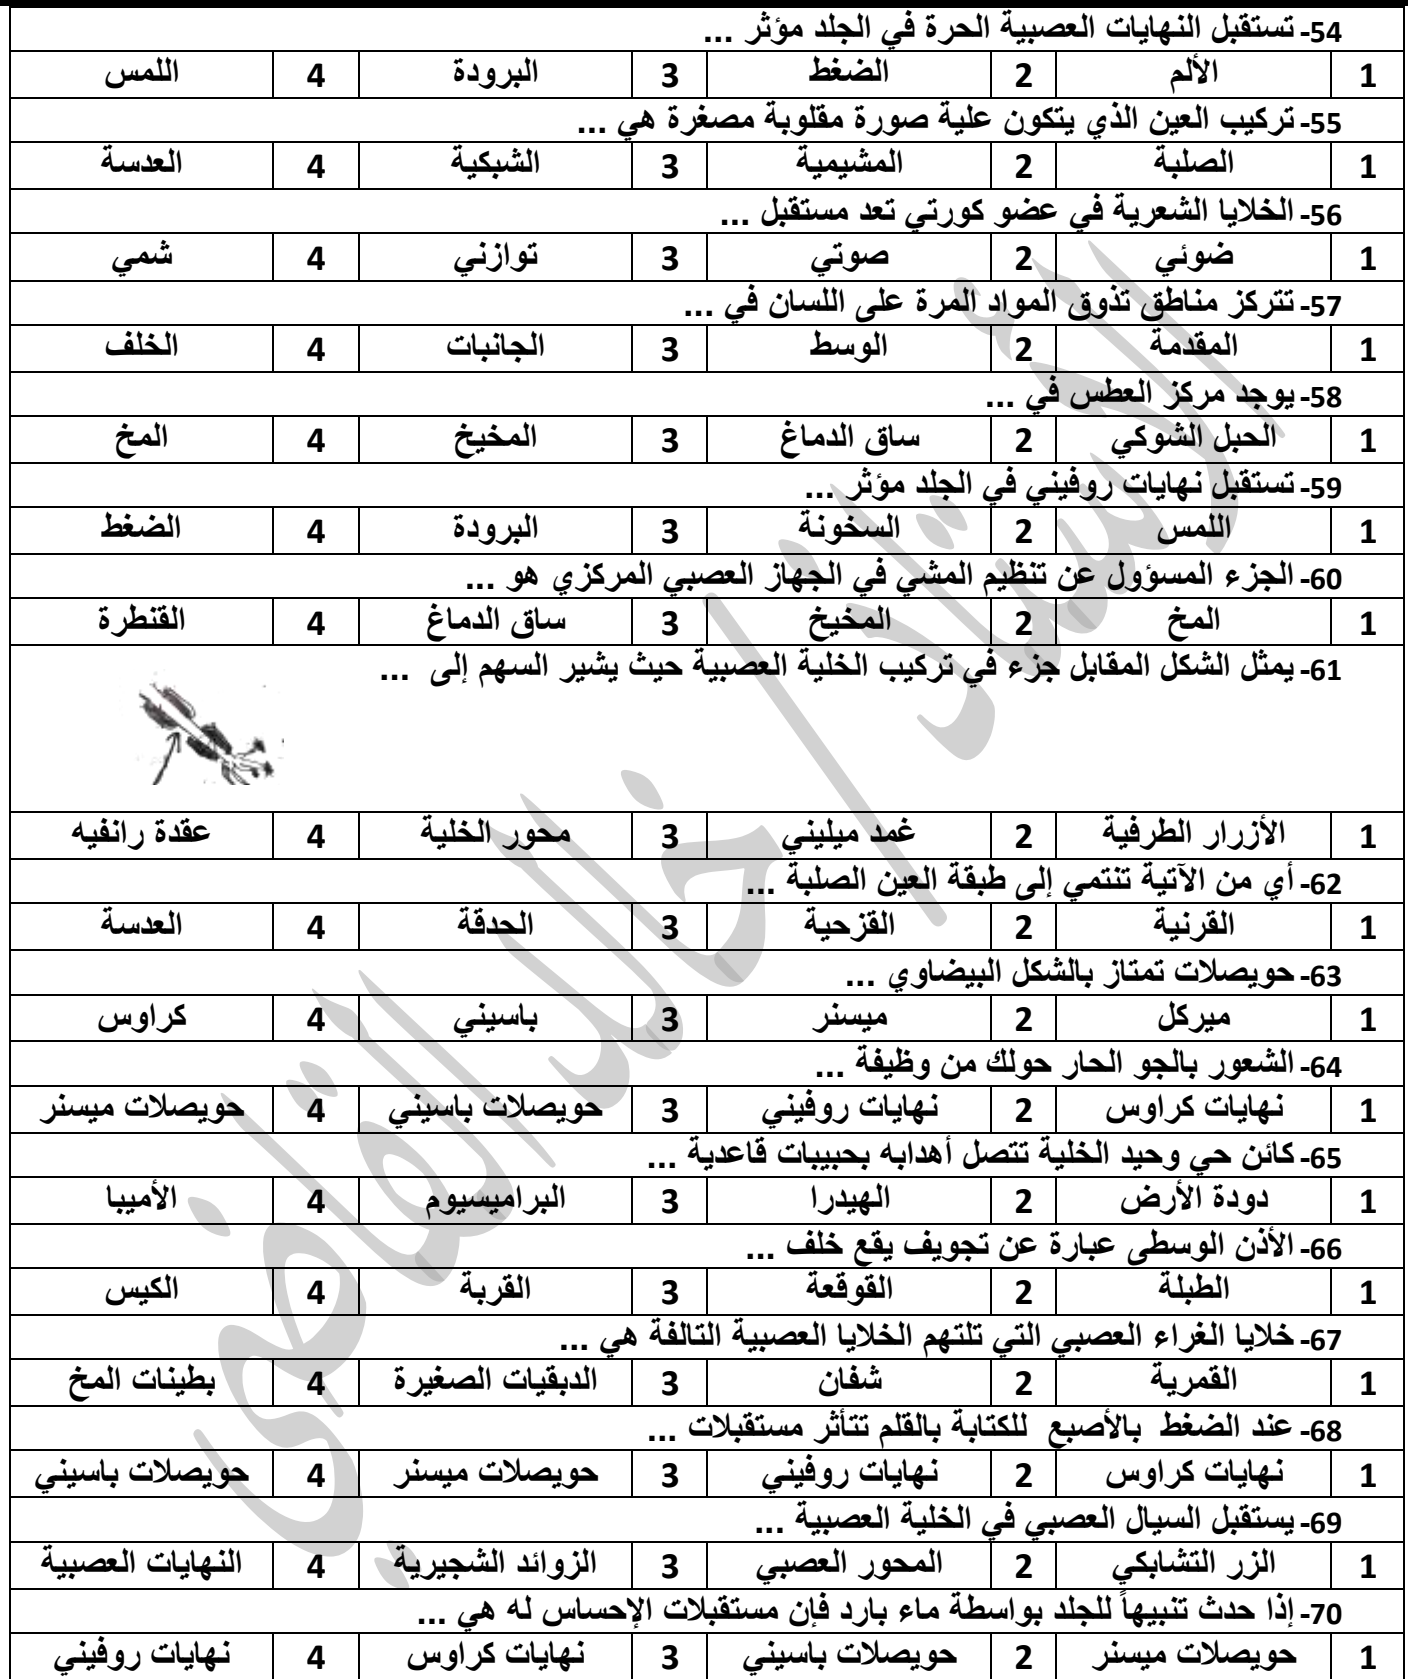 54- تستقبل النهايات العصبية الحرة في الجلد مؤثر ...
1 الألم 2 الضغط 3 البرودة 4 اللمس
55- تركيب العين الذي يتكون علية صورة مقلوبة مصغرة هي ...
1 الصلبة 2 المشيمية 3 الشبكية 4 العدسة
56- الخلايا الشعرية في عضو كورتي تعد مستقبل ...
1 ضوئي 2 صوتي 3 توازني 4 شمي
57- تتركز مناطق تذوق المواد المرة على اللسان في ...
1 المقدمة 2 الوسط 3 الجانبات 4 الخلف
58- يوجد مركز العطس في ...
1 الحبل الشوكي 2 ساق الدماغ 3 المخيخ 4 المخ
59- تستقبل نهايات روفيني في الجلد مؤثر ...
1 اللمس 2 السخونة 3 البرودة 4 الضغط
60- الجزء المسؤول عن تنظيم المشي في الجهاز العصبي المركزي هو ...
1 المخ 2 المخيخ 3 ساق الدماغ 4 القنطرة
61- يمثل الشكل المقابل جزء في تركيب الخلية العصبية حيث يشير السهم إلى ...
1 الأزرار الطرفية 2 غمد ميليني 3 محور الخلية 4 عقدة رانفيه
62- أي من الآتية تنتمي إلى طبقة العين الصلبة ...
1 القرنية 2 القزحية 3 الحدقة 4 العدسة
63- حويصلات تمتاز بالشكل البيضاوي ...
1 ميركل 2 ميسنر 3 باسيني 4 كراوس
64- الشعور بالجو الحار حولك من وظيفة ...
1 نهايات كراوس 2 نهايات روفيني 3 حويصلات باسيني 4 حويصلات ميسنر
65- كائن حي وحيد الخلية تتصل أهدابه بحبيبات قاعدية ...
1 دودة الأرض 2 الهيدرا 3 البراميسيوم 4 الأميبا
66- الأذن الوسطى عبارة عن تجويف يقع خلف ...
1 الطبلة 2 القوقعة 3 القربة 4 الكيس
67- خلايا الغراء العصبي التي تلتهم الخلايا العصبية التالفة هي ...
1 القمرية 2 شفان 3 الدبقيات الصغيرة 4 بطينات المخ
68- عند الضغط بالأصبع للكتابة بالقلم تتأثر مستقبلات ...
1 نهايات كراوس 2 نهايات روفيني 3 حويصلات ميسنر 4 حويصلات باسيني
69- يستقبل السيال العصبي في الخلية العصبية ...
1 الزر التشابكي 2 المحور العصبي 3 الزوائد الشجيرية 4 النهايات العصبية
70- إذا حدث تنبيهاً للجلد بواسطة ماء بارد فإن مستقبلات الإحساس له هي ...
1 حويصلات ميسنر 2 حويصلات باسيني 3 نهايات كراوس 4 نهايات روفيني
الأستاذ / خالد القاضي